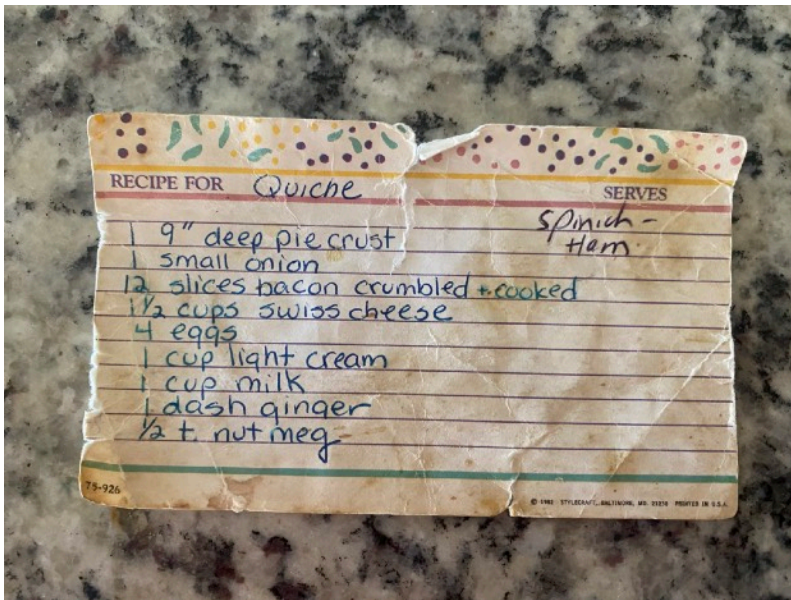 RECIPE FOR Quiche SERVES
Spinich -
Ham
1 9" deep pie crust
1 small onion
12 slices bacon crumbled + cooked
1 1/2 cups swiss cheese
4 eggs
1 cup light cream
1 cup milk
1 dash ginger
1/2 t. nutmeg
75-926
© 1992 STYLECRAFT, BALTIMORE, MD. PRINTED IN U.S.A.